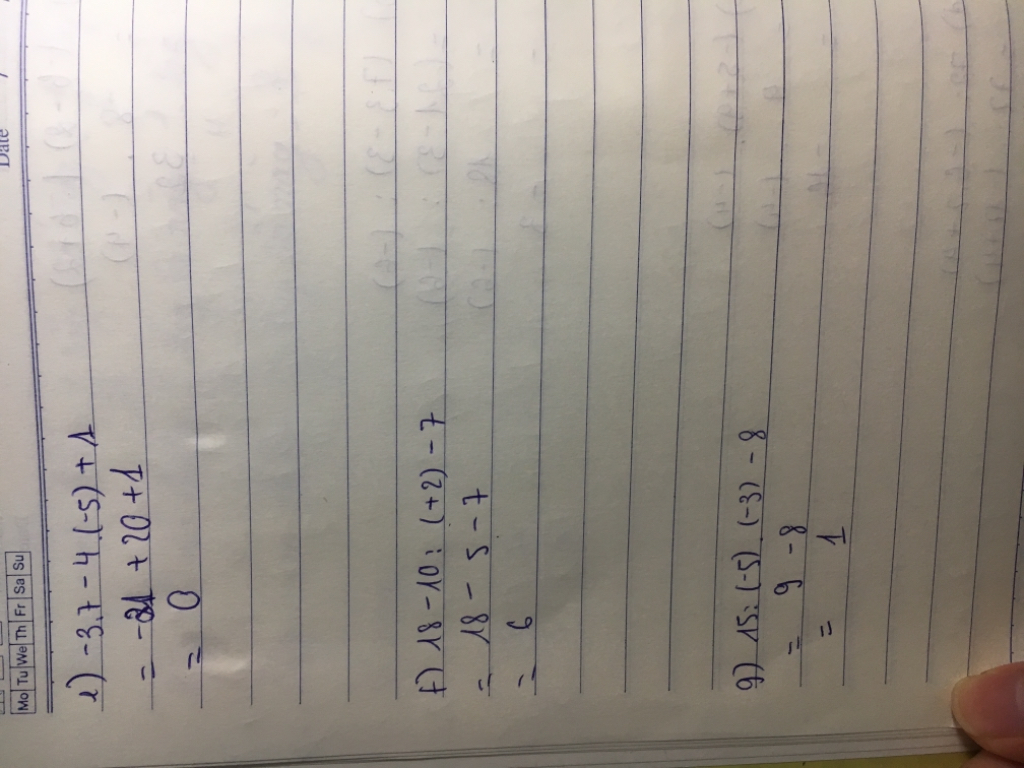 Date
Mo Tu We Th Fr Sa Su
e) -3.7 - 4.(-5) + 1
= -21 + 20 + 1
= 0
f) 18 - 10 : (+2) - 7
= 18 - 5 - 7
= 6
g) 15 : (-5) . (-3) - 8
= 9 - 8
= 1